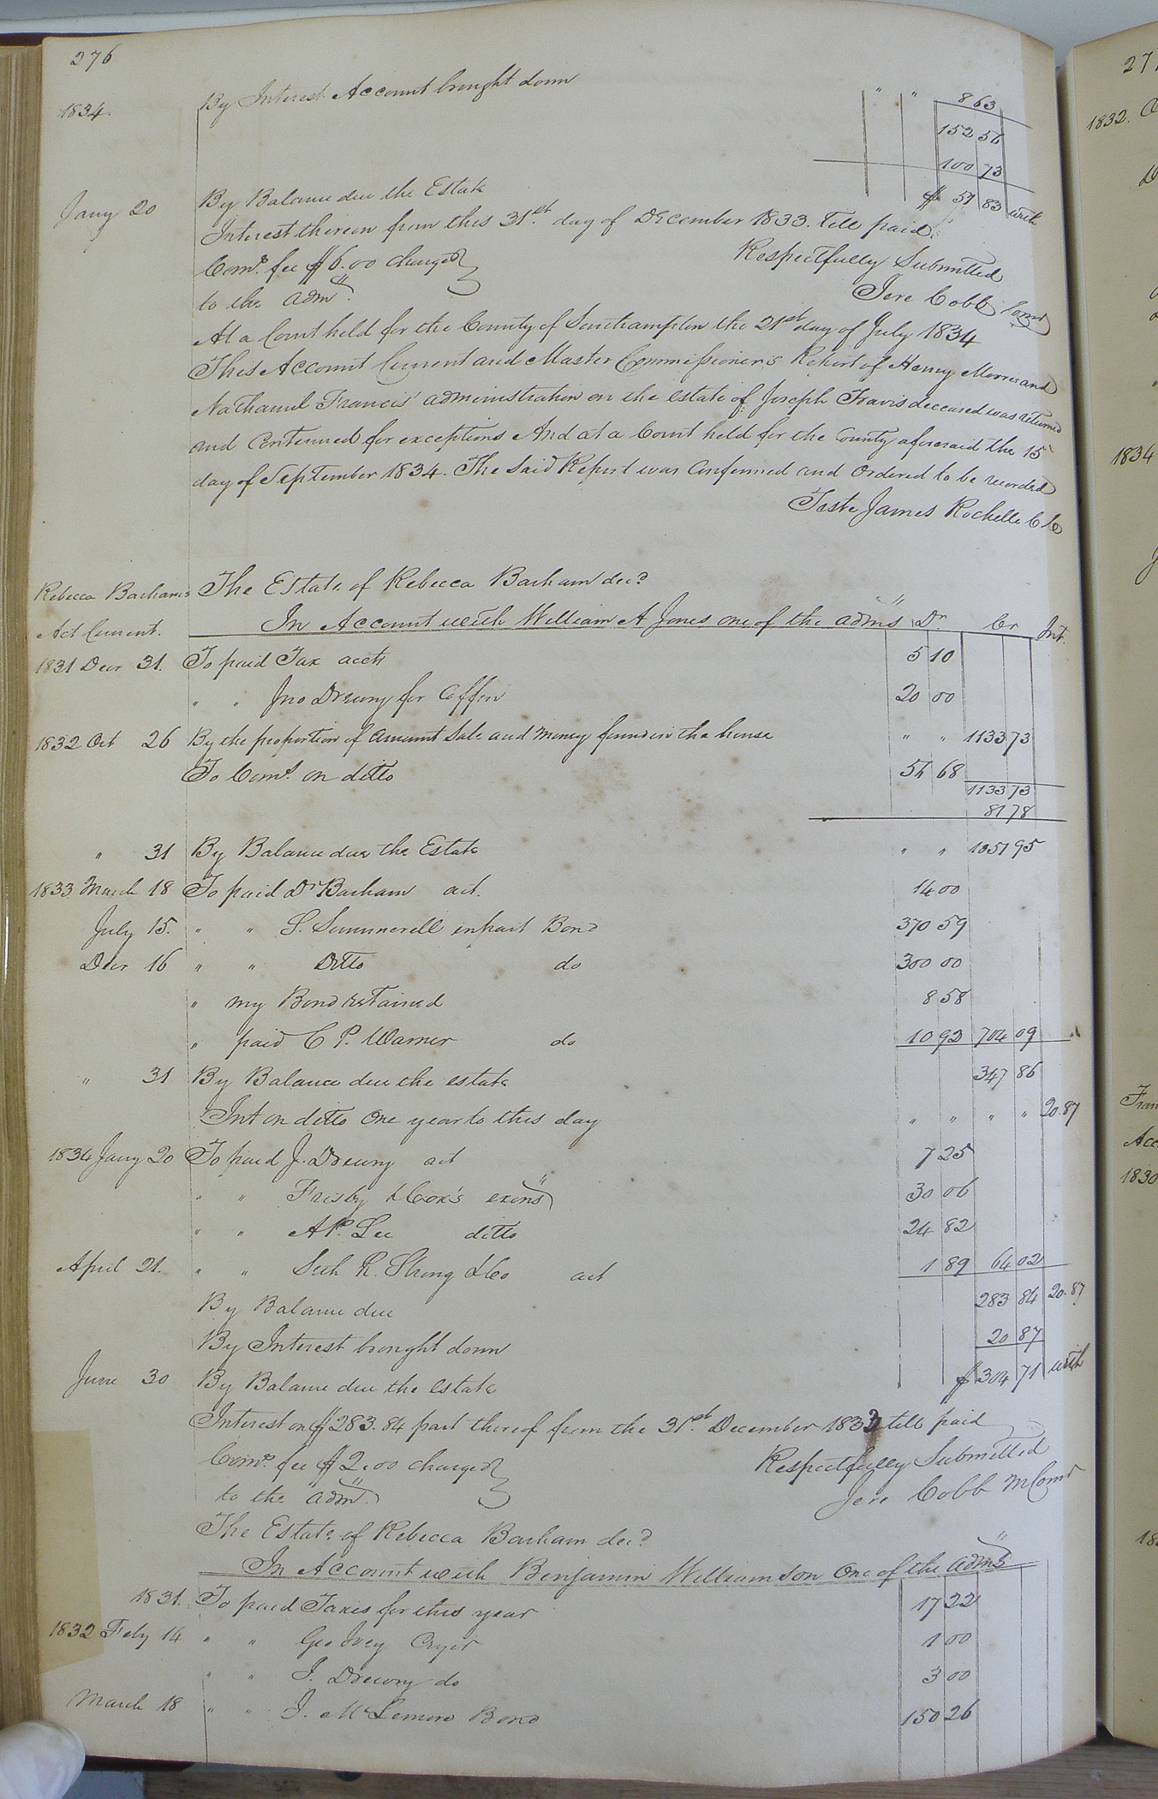 276
1834. By Interest Account brought down " " 8 63
152 56
100 73
Jany 20 By Balance due the Estate $ 51 83 with
Interest thereon from this 31st day of December 1833. till paid.
Coms. fee $6.00 charged Respectfully Submitted
to the adms. Jere Cobb Comr
At a Court held for the County of Southampton the 21st day of July 1834
This Account Current and Master Commissioner's Report of Henry Moore and
Nathaniel Francis' administration on the estate of Joseph Travis deceased was returned
and Continued for exceptions And at a Court held for the County aforesaid the 15
day of September 1834. The Said Report was Confirmed and Ordered to be recorded
Teste James Rochelle C C
Rebecca Barham's The Estate of Rebecca Barham decd
Act Current. In Account with William A Jones one of the adms Dr. Cr Int.
1831 Decr 31. To paid Tax accts 5 10
" " Jno Drewry for Coffin 20 00
1832 Oct 26 By the proportion of amount Sale and money found in the house " " 1133 73
To Coms. on ditto 56 68
1133 73
81 78
" 31 By Balance due the Estate " " 1051 95
1833 March 18 To paid Dr Barham act. 14 00
July 15. " " S. Summerell in part Bond 370 59
Decr 16 " " Ditto do 300 00
" my Bond retained 8 58
" paid C P. Warner do 10 92 704 09
" 31 By Balance due the estate 347 86
Int on ditto One year to this day " " " " 20.87
1834 Jany 20 To paid J. Drewry act 7 25
" " Fresby & Cook's exons 30 06
" " Lee ditto 24 82
April 21. " " Seth R. Strong & Co act 1 89 64 02
By Balance due 283 84 20.87
By Interest brought down 20 87
June 30 By Balance due the estate $ 304 71 with
Interest on $283.84 part thereof from the 31st. December 1833 till paid
Coms. fee $2.00 charged Respectfully Submitted
to the adms. Jere Cobb M Comr
The Estate of Rebecca Barham decd
In Account with Benjamin Williamson One of the adms
1831. To paid Taxes for this year 17 22
1832 Feby 14 " " Geo Ivey Cryer 1 00
" " J. Drewry do 3 00
March 18 " " J. McLemore Bond 150 26
27
1832.
1834
Fran
Acc
1830